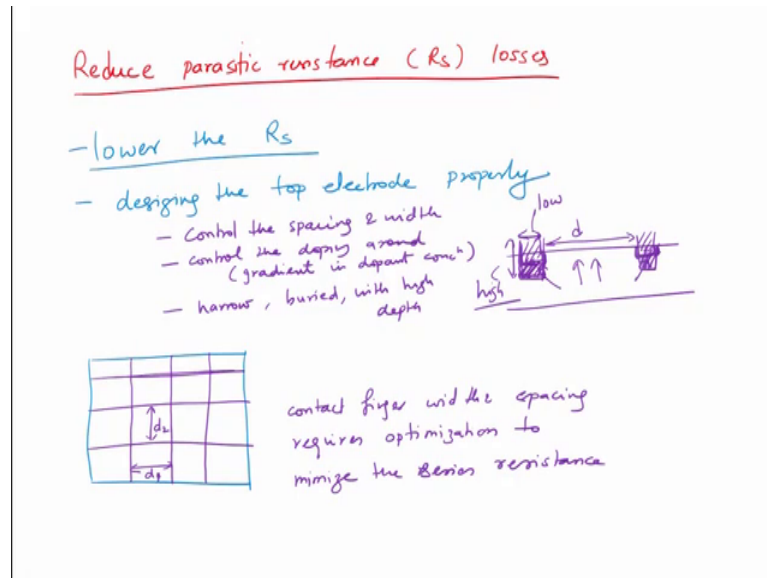 Reduce parasitic resistance (Rs) losses
- lower the Rs
- desiging the top electrode properly
- Control the spacing & width
- control the doping around
(gradient in dopant concn)
- narrow, buried, with high
depth
low
d
high
d2
d1
contact finger width & spacing
requires optimization to
mimize the series resistance